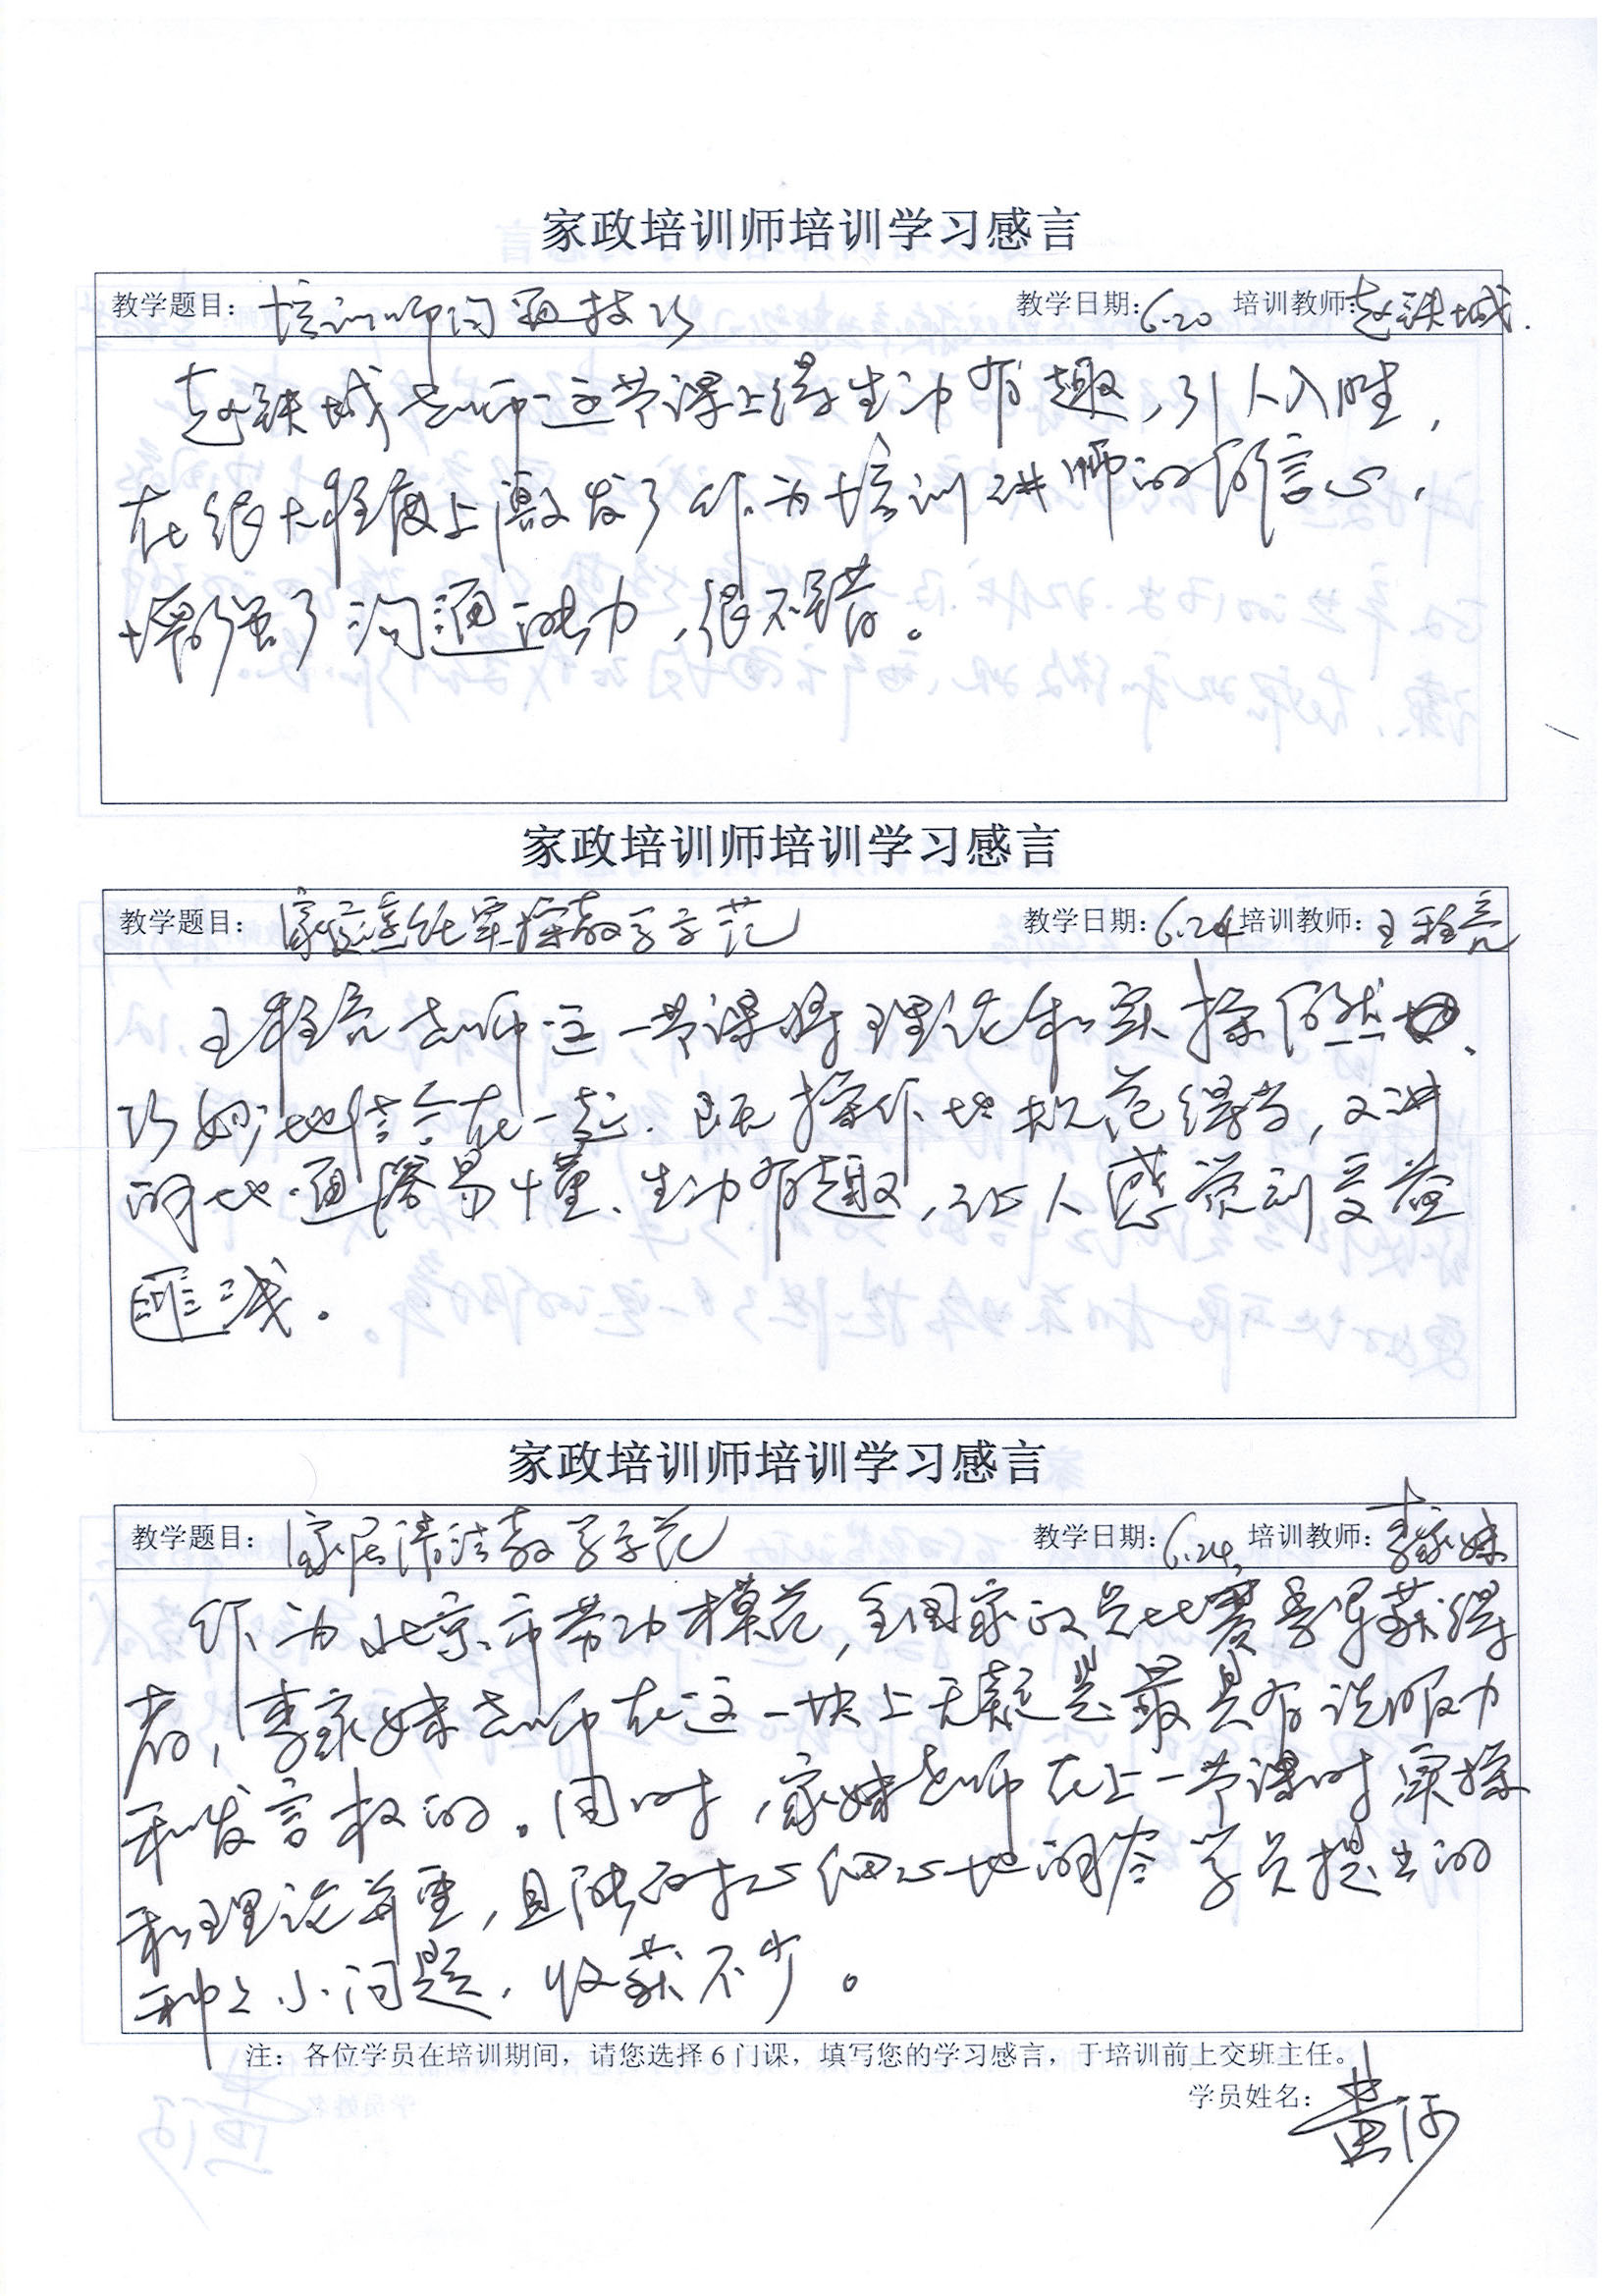 家政培训师培训学习感言
教学题目：培训师沟通技巧 教学日期：6.20 培训教师：赵铁城.
赵铁城老师这节课上得生动有趣，引人入胜，
在很大程度上激发了作为培训讲师的自信心，
增强了沟通能力，很不错。
家政培训师培训学习感言
教学题目：家庭烹饪实操教学示范 教学日期：6.24 培训教师：王程亮
王程亮老师这一节课将理论和实操
巧妙地结合在一起．既操作地规范得当，又讲
的地通俗易懂、生动有趣，让人感觉到受益
匪浅。
家政培训师培训学习感言
教学题目：家居清洁教学示范 教学日期：6.24, 培训教师：李家妹
作为北京市劳动模范，全国家政员比赛季军获得
者，李家妹老师在这一块上无疑是最具有说服力
和发言权的。同时，家妹老师在上一节课时实操
和理论并重，且能耐心细心地解答学员提出的
种々小问题，收获不少。
注：各位学员在培训期间，请您选择6门课，填写您的学习感言，于培训前上交班主任。
学员姓名：黄河